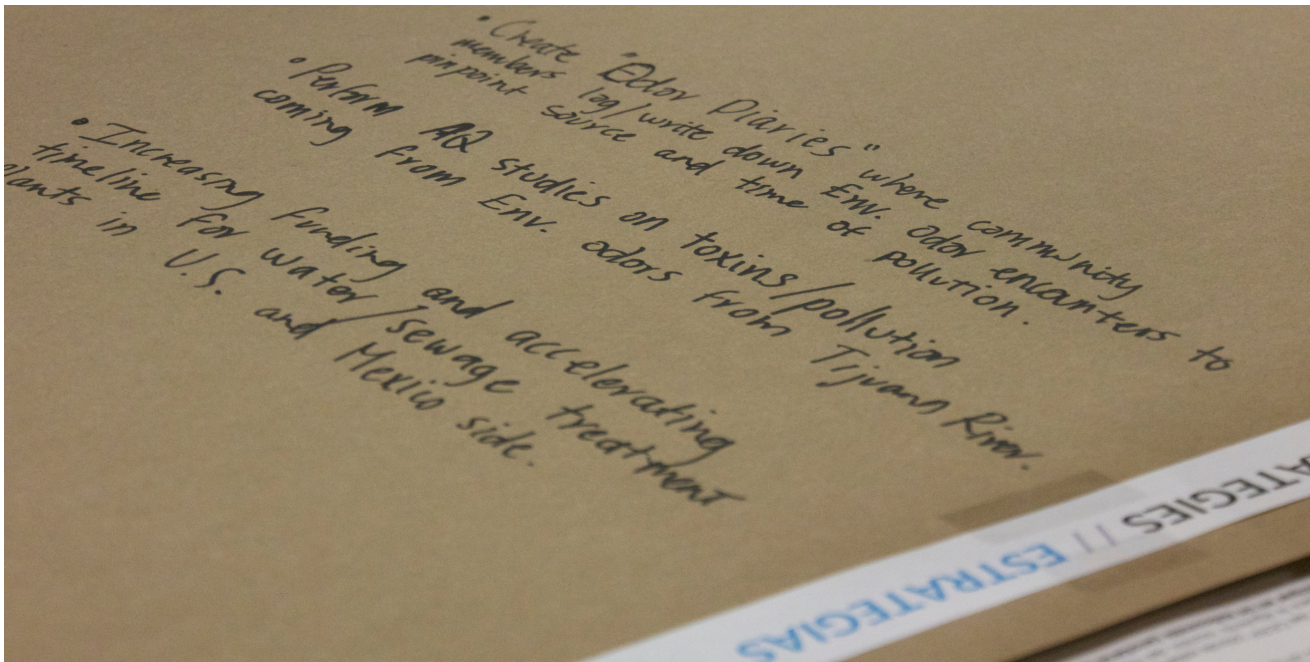 • Create "Odor Diaries" where community
members log/write down Env. Odor encounters to
pinpoint source and time of pollution.
• Perform AQ studies on toxins/pollution
coming from Env. odors from Tijuana River.
• Increasing funding and accelerating
timeline for water/sewage treatment
plants in U.S. and Mexico side.
ATEGIES // ESTRATEGIAS